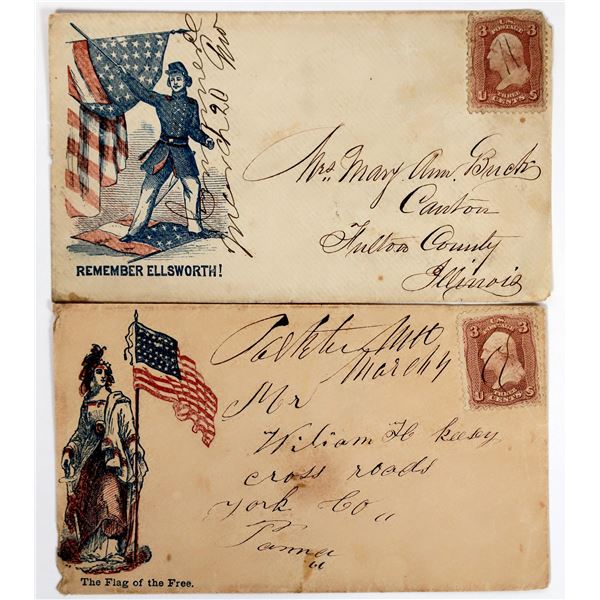 March 20
3 3
U.S.
POSTAGE
U THREE CENTS S
Mrs. Mary Ann. Buck
Canton
Fulton County
Illinois
REMEMBER ELLSWORTH!
March 4
3 3
U.S.
POSTAGE
U THREE CENTS S
Mr
Wiliam H keesy
cross roads
York Co "
Panna "
The Flag of the Free.